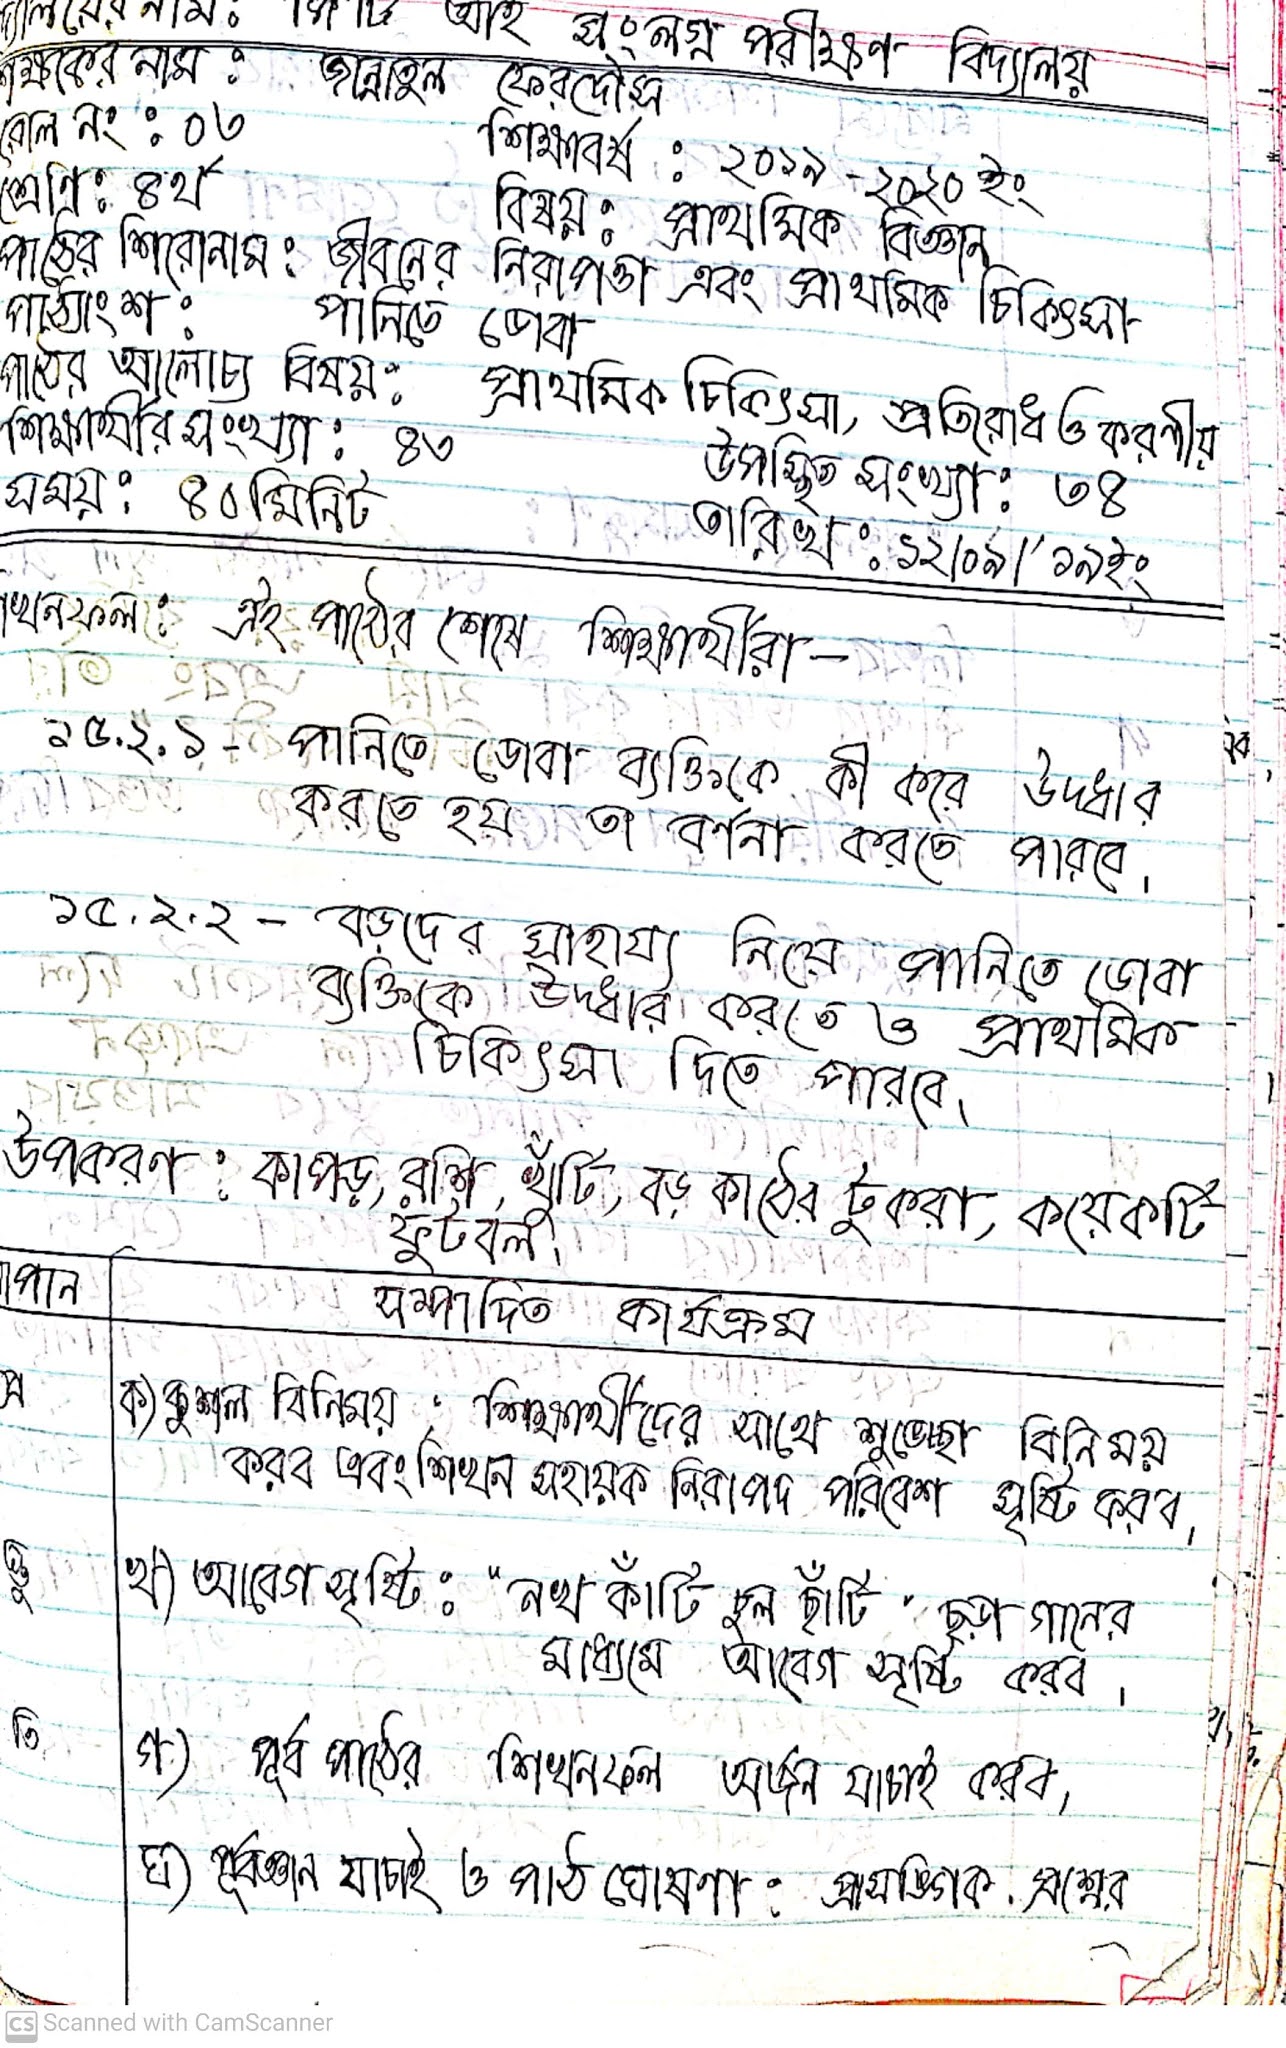 বিদ্যালয়ের নাম: পি টি আই সংলগ্ন পরীক্ষণ বিদ্যালয়
শিক্ষকের নাম: জান্নাতুল ফেরদৌস
রোল নং: ০৩ শিক্ষাবর্ষ: ২০১৯-২০২০ ইং
শ্রেণি: ৪র্থ বিষয়: প্রাথমিক বিজ্ঞান
পাঠের শিরোনাম: জীবনের নিরাপত্তা এবং প্রাথমিক চিকিৎসা
পাঠ্যাংশ: পানিতে ডোবা
পাঠের আলোচ্য বিষয়: প্রাথমিক চিকিৎসা, প্রতিরোধ ও করণীয়
শিক্ষার্থীর সংখ্যা: ৪৩ উপস্থিত সংখ্যা: ৩৪
সময়: ৪০ মিনিট তারিখ: ১২/০৯/'১৯ইং
শিখনফল: এই পাঠের শেষে শিক্ষার্থীরা-
১৫.২.১- পানিতে ডোবা ব্যক্তিকে কী করে উদ্ধার
করতে হয় তা বর্ণনা করতে পারবে।
১৫.২.২- বড়দের সাহায্য নিয়ে পানিতে ডোবা
ব্যক্তিকে উদ্ধার করতে ও প্রাথমিক
চিকিৎসা দিতে পারবে।
উপকরণ: কাপড়, রশি, খুঁটি, বড় কাঠের টুকরা, কয়েকটি
ফুটবল।
সোপান সম্পাদিত কার্যক্রম
প্র ক) কুশল বিনিময়: শিক্ষার্থীদের সাথে শুভেচ্ছা বিনিময়
করব এবং শিখন সহায়ক নিরাপদ পরিবেশ সৃষ্টি করব।
স্তু খ) আবেগ সৃষ্টি: "নখ কাঁটি চুল ছাঁটি" ছড়া গানের
মাধ্যমে আবেগ সৃষ্টি করব।
তি গ) পূর্ব পাঠের শিখনফল অর্জন যাচাই করব,
ঘ) পূর্বজ্ঞান যাচাই ও পাঠ ঘোষণা: প্রাসঙ্গিক প্রশ্নের
CS Scanned with CamScanner